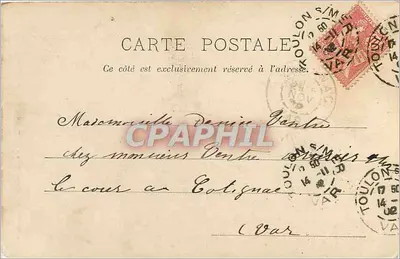 CARTE POSTALE
Ce côté est exclusivement réservé à l'adresse.
TOULON S/MER
VAR
TOULON
17 50
14 -1
02
VAR
CPAPHIL
Mademoiselle Denise Ventre
chez monsieur Ventre
le cours à Cotignac
(Var)
TOULON S/MER
14 -11
VAR